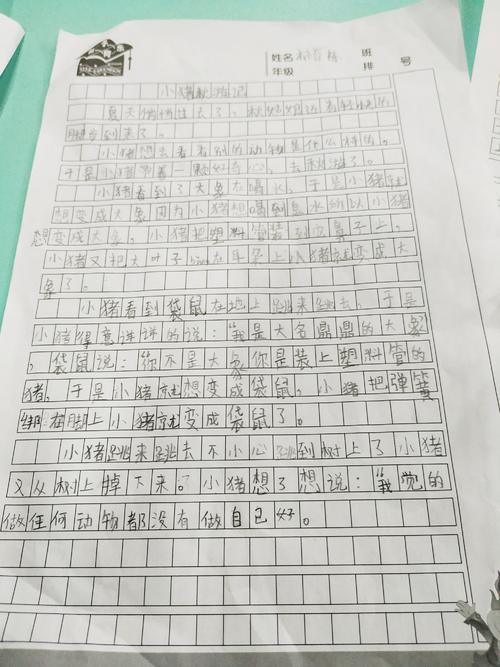 姓名 班
年级 排 号
小猪秋游记
夏天悄悄过去了，秋姑姑迈着轻快的
脚步到来了。
小猪想去看看别的动物是什么样的。
于是小猪带着一颗好奇心，去秋游了。
小猪看到了大象在喝水，于是小猪就
想变成大象因为小猪想喝到急水的以小猪
想变成大象，小猪把塑料管装到它鼻子上。
小猪又把大叶子 在耳朵上小猪就变成大
象了。
小猪看到袋鼠在地上跳来跳去，于是
小猪得意洋洋的说：“我是大名鼎鼎的大象
，袋鼠说：“你不是大象你是装上塑料管的
猪，于是小猪就想变成袋鼠，小猪把弹簧
绑在脚上小猪就变成袋鼠了。
小猪跳来跳去不小心跳到树上了小猪
又从树上掉下来。小猪想了想说：“我觉的
做任何动物都没有做自己好。